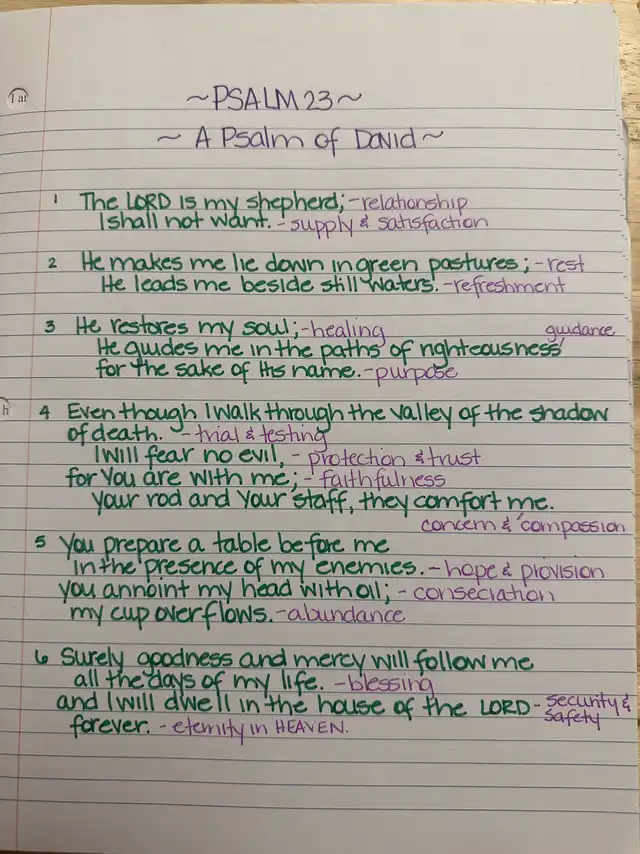 I ar
~PSALM 23~
~ A Psalm of David ~
1 The LORD is my shepherd; -relationship
I shall not want. - supply & satisfaction
2 He makes me lie down in green pastures; -rest
He leads me beside still waters. -refreshment
3 He restores my soul; -healing
guidance
He guides me in the paths of righteousness
for the sake of His name. -purpose
h
4 Even though I walk through the valley of the shadow
of death. - trial & testing
I will fear no evil, - protection & trust
for You are with me; - faithfulness
Your rod and Your staff, they comfort me.
concern & compassion
5 You prepare a table before me
in the presence of my enemies. - hope & provision
You annoint my head with oil; - consecration
my cup overflows. -abundance
6 Surely goodness and mercy will follow me
all the days of my life. -blessing
and I will dwell in the house of the LORD - security &
safety
forever. - eternity in HEAVEN.